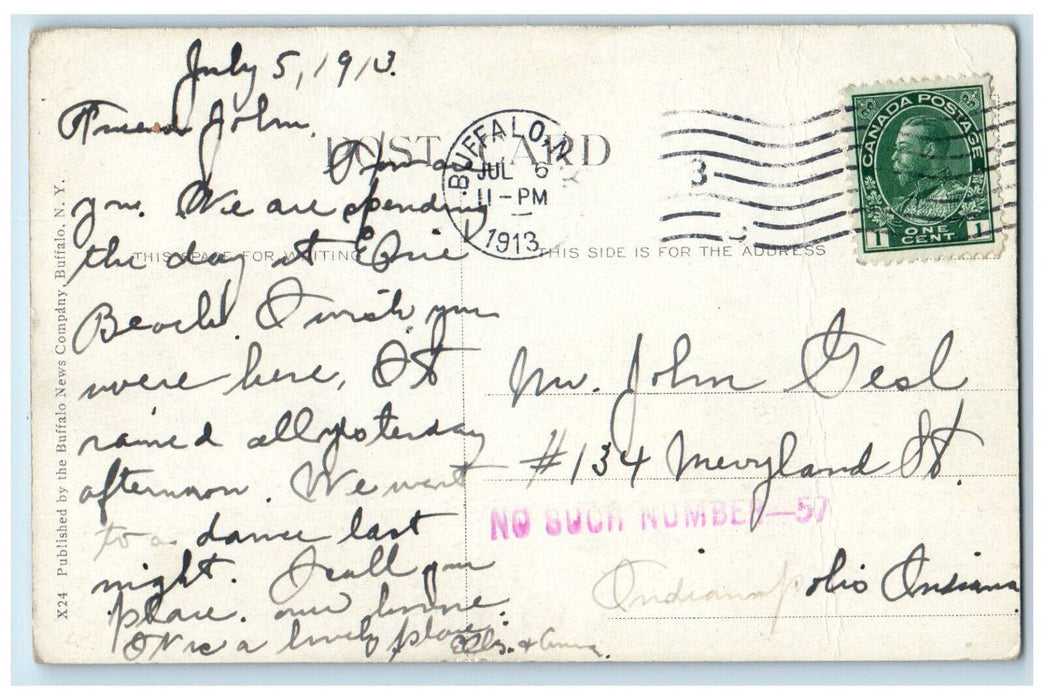 July 5, 1913.
Friend John,
POST CARD
BUFFALO, N.Y.
JUL 6
11-PM
1913
3
CANADA POSTAGE
1 ONE CENT 1
you. We are spending
the day at Erie
THIS SPACE FOR WRITING
THIS SIDE IS FOR THE ADDRESS
Beach. I wish you
were here, It
rained all yesterday
afternoon. We went
to a dance last
night. I call you
place. our home.
It is a lovely place.
& Anna.
Mr. John Gesl
#134 Meryland St.
NO SUCH NUMBER—57
Indianapolis Indiana
X24 Published by the Buffalo News Company, Buffalo, N. Y.